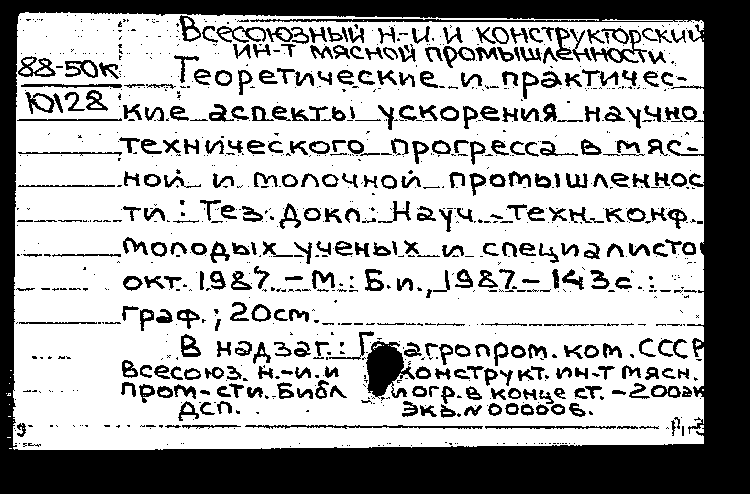 Всесоюзный н.-и. и конструкторский
ин-т мясной промышленности.
88-50к
Ю128
Теоретические и практичес-
кие аспекты ускорения научно
технического прогресса в мяс-
ной и молочной промышленнос
ти : Тез. докл. : Науч.-техн. конф.
молодых ученых и специалистов
окт. 1987. – М. : Б.и., 1987 – 143 с. :
граф. ; 20см.
В надзаг.: Госагропром. ком. СССР
Всесоюз. н.-и. и конструкт. ин-т мясн.
пром-сти. Библиогр. в конце ст. – 200экз
ДСП. Экз. № 000006.
9